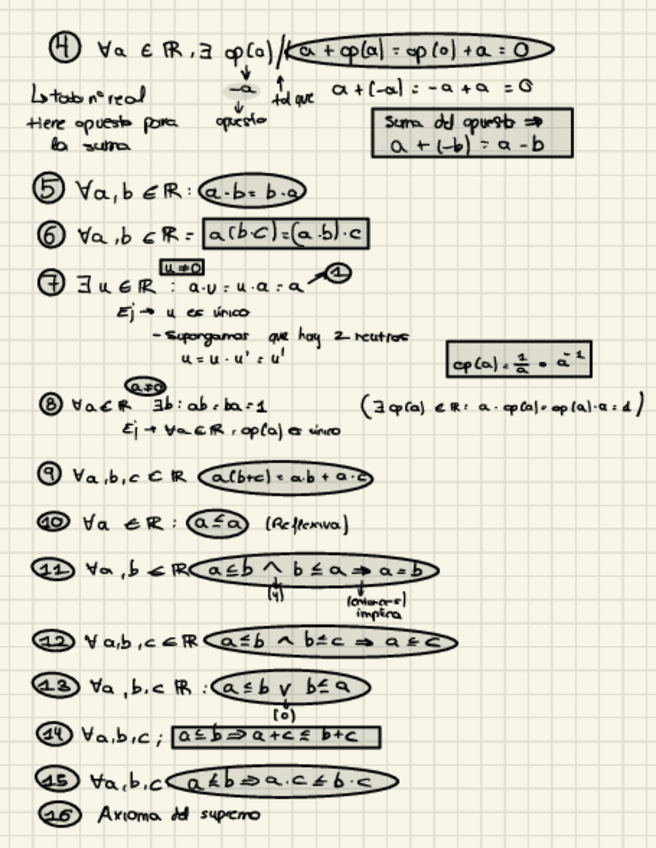 ④ ∀a ∈ ℝ, ∃ op(a) / a + op(a) = op(a) + a = 0
-a
tal que
a + (-a) = -a + a = 0
↳ todo nº real
tiene opuesto para
la suma
opuesto
Suma del opuesto ⇒
a + (-b) = a - b
⑤ ∀a,b ∈ ℝ : a·b = b·a
⑥ ∀a,b ∈ ℝ = a(b·c) = (a·b)·c
u≠0
⑦ ∃ u ∈ ℝ : a·u = u·a = a → ①
Ej → u es único
- Supongamos que hay 2 neutros
u = u·u' = u'
op(a) = 1/a = a⁻¹
a≠0
⑧ ∀a∈ℝ ∃b : ab = ba = 1 (∃ op(a) ∈ ℝ : a · op(a) = op(a)·a = 1)
Ej → ∀a∈ℝ, op(a) es único
⑨ ∀a,b,c ⊂ ℝ a(b+c) = a·b + a·c
⑩ ∀a ∈ ℝ : a ≤ a (Reflexiva)
⑪ ∀a,b ∈ ℝ a ≤ b ∧ b ≤ a ⇒ a = b
(y)
(entonces)
implica
⑫ ∀a,b,c ∈ ℝ a ≤ b ∧ b ≤ c ⇒ a ≤ c
⑬ ∀a,b,c ℝ : a ≤ b ∨ b ≤ a
(o)
⑭ ∀a,b,c ; a ≤ b ⇒ a + c ≤ b + c
⑮ ∀a,b,c a ≤ b ⇒ a·c ≤ b·c
⑯ Axioma del supremo